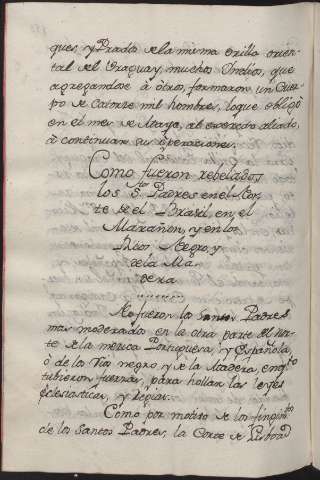 ques, y Prados de la misma orilla orien-
tal del Uraguay, muchos Indios, que
agregandose à otros, formaron un Cuer-
po de Catorze mil hombres, loque obligò
en el mes de Mayo, al exercito aliado,
à continuar sus operaciones.
Como fueron rebelados
los S.tos Padres en el Nor-
te de el Brasil, en el
Marañon, y en los
Rios Negro, y
de la Ma-
dera
No fueron los Santos Padres
mas moderados en la otra parte del nor-
te de la America Portuguesa, y Española,
ò de los rios negro, y de la Madera, en q.to
tubieron fuerzas, para hollar las leyes
eclesiasticas, y regias.
Como por motivo de los fingim.tos
de los Santos Padres, la Corte de Lisboa